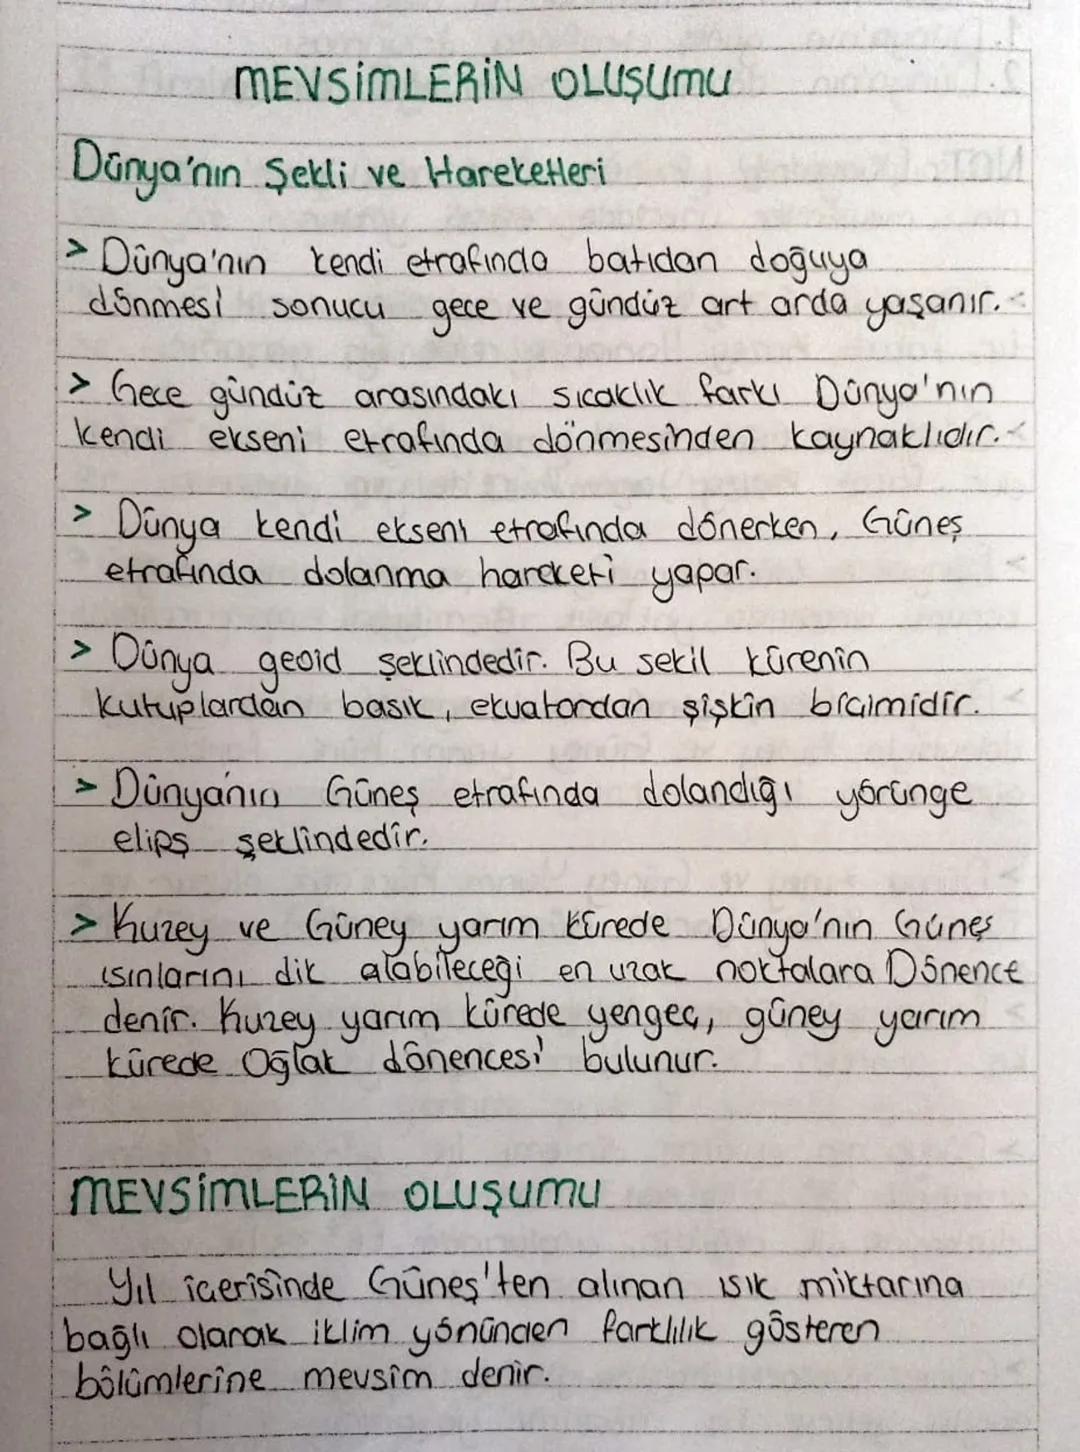 MEVSİMLERİN OLUŞUMU
Dünya'nın Şekli ve Hareketleri
> Dünya'nın kendi etrafında batıdan doğuya
dönmesi sonucu gece ve gündüz art arda yaşanır.
> Gece gündüz arasındaki sıcaklık farkı Dünya'nın
kendi ekseni etrafında dönmesinden kaynaklıdır.
> Dünya kendi ekseni etrafında dönerken, Güneş
etrafında dolanma hareketi yapar.
> Dünya geoid şeklindedir. Bu sekil kürenin
kutuplardan basık, ekvatordan şişkin biçimidir.
> Dünyanın Güneş etrafında dolandığı yörünge
elips şeklindedir.
> Kuzey ve Güney yarım kürede Dünya'nın Güneş
ısınlarını dik alabileceği en uzak noktalara Dönence
denir. Kuzey yarım kürede yengeç, güney yarım
kürede Oğlak dönencesi bulunur.
MEVSİMLERİN OLUŞUMU
Yıl içerisinde Güneş'ten alınan ısık miktarına
bağlı olarak iklim yönünden farklılık gösteren
bölümlerine mevsim denir.